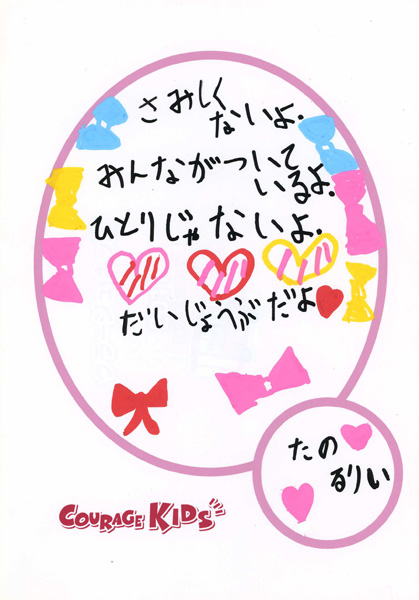 さみしく
ないよ.
みんながついて
いるよ.
ひとりじゃないよ.
だいじょうぶだよ
たの
るりい
COURAGE KIDS